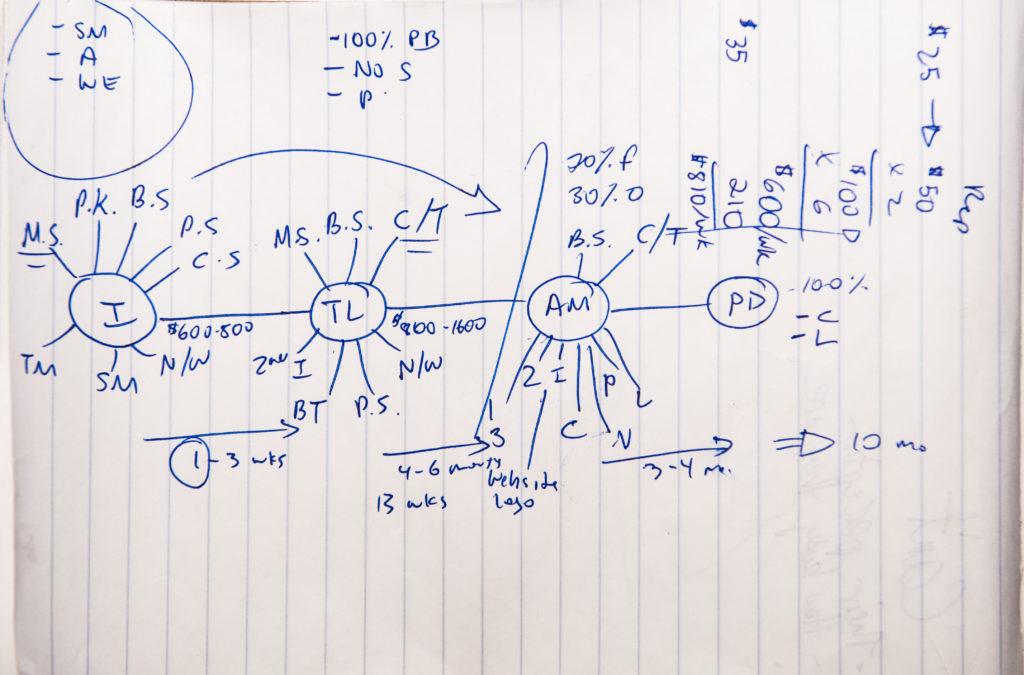 - SM
- A
- WE
-100% PB
- NO S
- P.
$35
$25 → $50
x 2
$100 D
x 6
$600/wk
210
$810/wk
20% f
30% O
M.S.
P.K.
B.S
P.S
C.S
I
TM
SM
N/W
$600-800
MS.
B.S.
C/T
TL
2nd I
BT
P.S.
N/W
B.S.
C/T
AM
1
2
3
I
C
N
P
L
PD
-100%
1-3 wks
4-6
13 wks
Website
Logo
3-4 mo.
10 mo